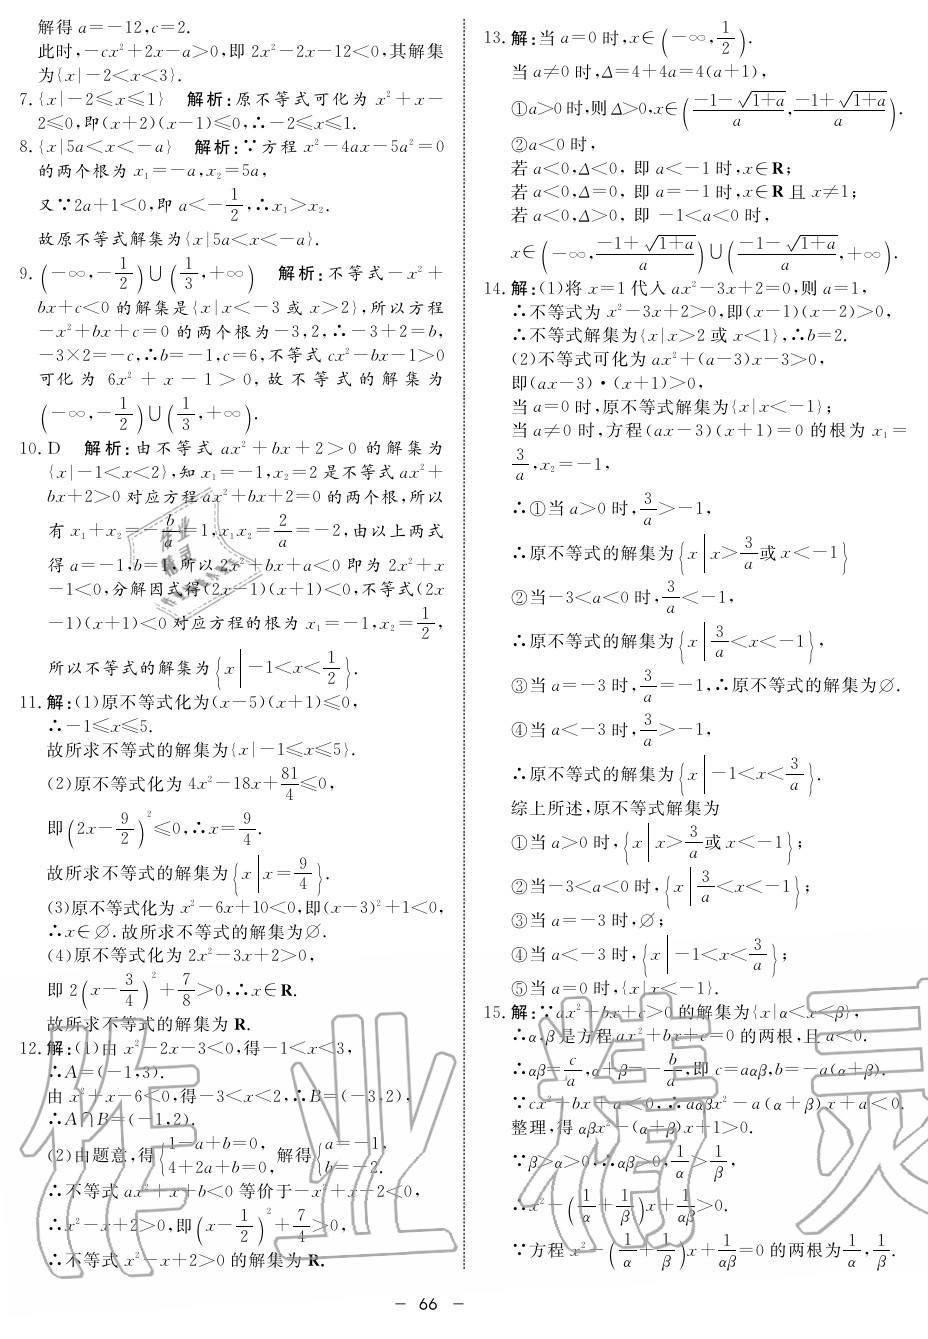 解得 a=-12,c=2.
此时,-cx²+2x-a>0,即 2x²-2x-12<0,其解集
为{x|-2<x<3}.
7. {x|-2≤x≤1} 解析:原不等式可化为 x²+x-
2≤0,即(x+2)(x-1)≤0,∴-2≤x≤1.
8. {x|5a<x<-a} 解析:∵方程 x²-4ax-5a²=0
的两个根为 x₁=-a,x₂=5a,
又∵2a+1<0,即 a<-1/2,∴x₁>x₂.
故原不等式解集为{x|5a<x<-a}.
9. (-∞,-1/2)∪(1/3,+∞) 解析:不等式-x²+
bx+c<0 的解集是{x|x<-3 或 x>2},所以方程
-x²+bx+c=0 的两个根为-3,2,∴-3+2=b,
-3×2=-c,∴b=-1,c=6,不等式 cx²-bx-1>0
可化为 6x²+x-1>0,故不等式的解集为
(-∞,-1/2)∪(1/3,+∞).
10. D 解析:由不等式 ax²+bx+2>0 的解集为
{x|-1<x<2},知 x₁=-1,x₂=2 是不等式 ax²+
bx+2>0 对应方程 ax²+bx+2=0 的两个根,所以
有 x₁+x₂=-b/a=1,x₁x₂=2/a=-2,由以上两式
得 a=-1,b=1,所以 2x²+bx+a<0 即为 2x²+x
-1<0,分解因式得(2x-1)(x+1)<0,不等式(2x
-1)(x+1)<0 对应方程的根为 x₁=-1,x₂=1/2,
所以不等式的解集为{x|-1<x<1/2}.
11. 解:(1)原不等式化为(x-5)(x+1)≤0,
∴-1≤x≤5.
故所求不等式的解集为{x|-1≤x≤5}.
(2)原不等式化为 4x²-18x+81/4≤0,
即(2x-9/2)²≤0,∴x=9/4.
故所求不等式的解集为{x|x=9/4}.
(3)原不等式化为 x²-6x+10<0,即(x-3)²+1<0,
∴x∈∅.故所求不等式的解集为∅.
(4)原不等式化为 2x²-3x+2>0,
即 2(x-3/4)²+7/8>0,∴x∈R.
故所求不等式的解集为 R.
12. 解:(1)由 x²-2x-3<0,得-1<x<3,
∴A=(-1,3).
由 x²+x-6<0,得-3<x<2,∴B=(-3,2),
∴A∩B=(-1,2).
(2)由题意,得{1-a+b=0, 4+2a+b=0, 解得{a=-1, b=-2.
∴不等式 ax²+x+b<0 等价于-x²+x-2<0,
∴x²-x+2>0,即(x-1/2)²+7/4>0,
∴不等式 x²-x+2>0 的解集为 R.
13. 解:当 a=0 时,x∈(-∞,1/2).
当 a≠0 时,Δ=4+4a=4(a+1),
①a>0 时,则 Δ>0,x∈((-1-√(1+a))/a,(-1+√(1+a))/a).
②a<0 时,
若 a<0,Δ<0, 即 a<-1 时,x∈R;
若 a<0,Δ=0, 即 a=-1 时,x∈R 且 x≠1;
若 a<0,Δ>0, 即 -1<a<0 时,
x∈(-∞,(-1+√(1+a))/a)∪((-1-√(1+a))/a,+∞).
14. 解:(1)将 x=1 代入 ax²-3x+2=0,则 a=1,
∴不等式为 x²-3x+2>0,即(x-1)(x-2)>0,
∴不等式解集为{x|x>2 或 x<1},∴b=2.
(2)不等式可化为 ax²+(a-3)x-3>0,
即(ax-3)·(x+1)>0,
当 a=0 时,原不等式解集为{x|x<-1};
当 a≠0 时,方程(ax-3)(x+1)=0 的根为 x₁=
3/a,x₂=-1,
∴①当 a>0 时,3/a>-1,
∴原不等式的解集为{x|x>3/a或 x<-1}
②当-3<a<0 时,3/a<-1,
∴原不等式的解集为{x|3/a<x<-1},
③当 a=-3 时,3/a=-1,∴原不等式的解集为∅.
④当 a<-3 时,3/a>-1,
∴原不等式的解集为{x|-1<x<3/a}.
综上所述,原不等式解集为
①当 a>0 时,{x|x>3/a或 x<-1};
②当-3<a<0 时,{x|3/a<x<-1};
③当 a=-3 时,∅;
④当 a<-3 时,{x|-1<x<3/a};
⑤当 a=0 时,{x|x<-1}.
15. 解:∵ax²+bx+c>0 的解集为{x|α<x<β},
∴α,β是方程 ax²+bx+c=0 的两根,且 a<0.
∴αβ=c/a,α+β=-b/a,即 c=aαβ,b=-a(α+β).
∵cx²+bx+a<0,∴aαβx²-a(α+β)x+a<0.
整理,得 αβx²-(α+β)x+1>0.
∵β>α>0,∴αβ>0,1/α>1/β,
∴x²-(1/α+1/β)x+1/αβ>0.
∵方程 x²-(1/α+1/β)x+1/αβ=0 的两根为1/α,1/β.
- 66 -
作业精灵